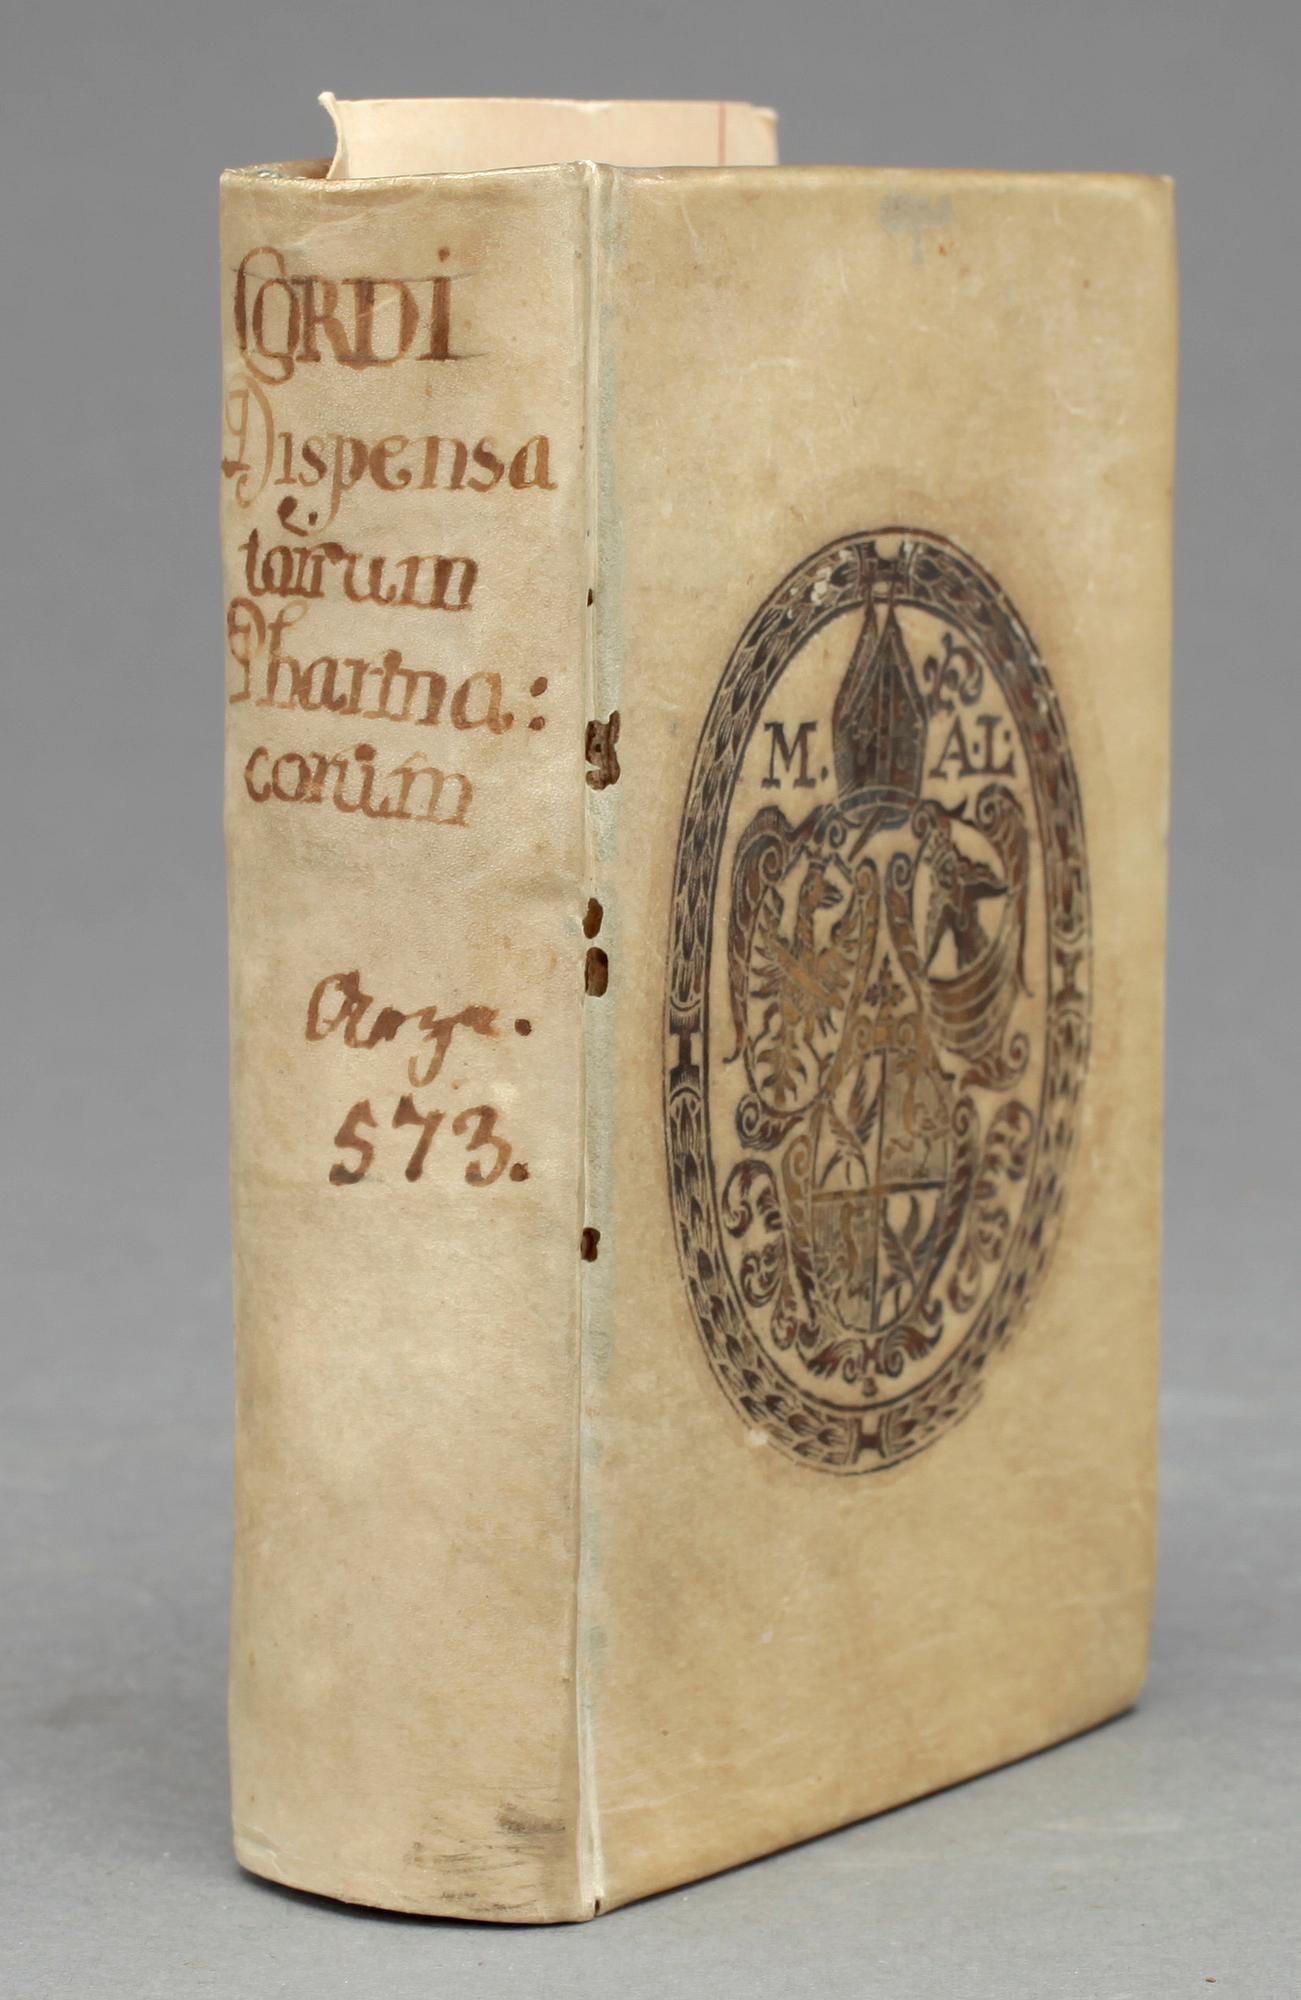 CORDI
Dispensa
torium
Pharma:
corum
573.
M. A.L.